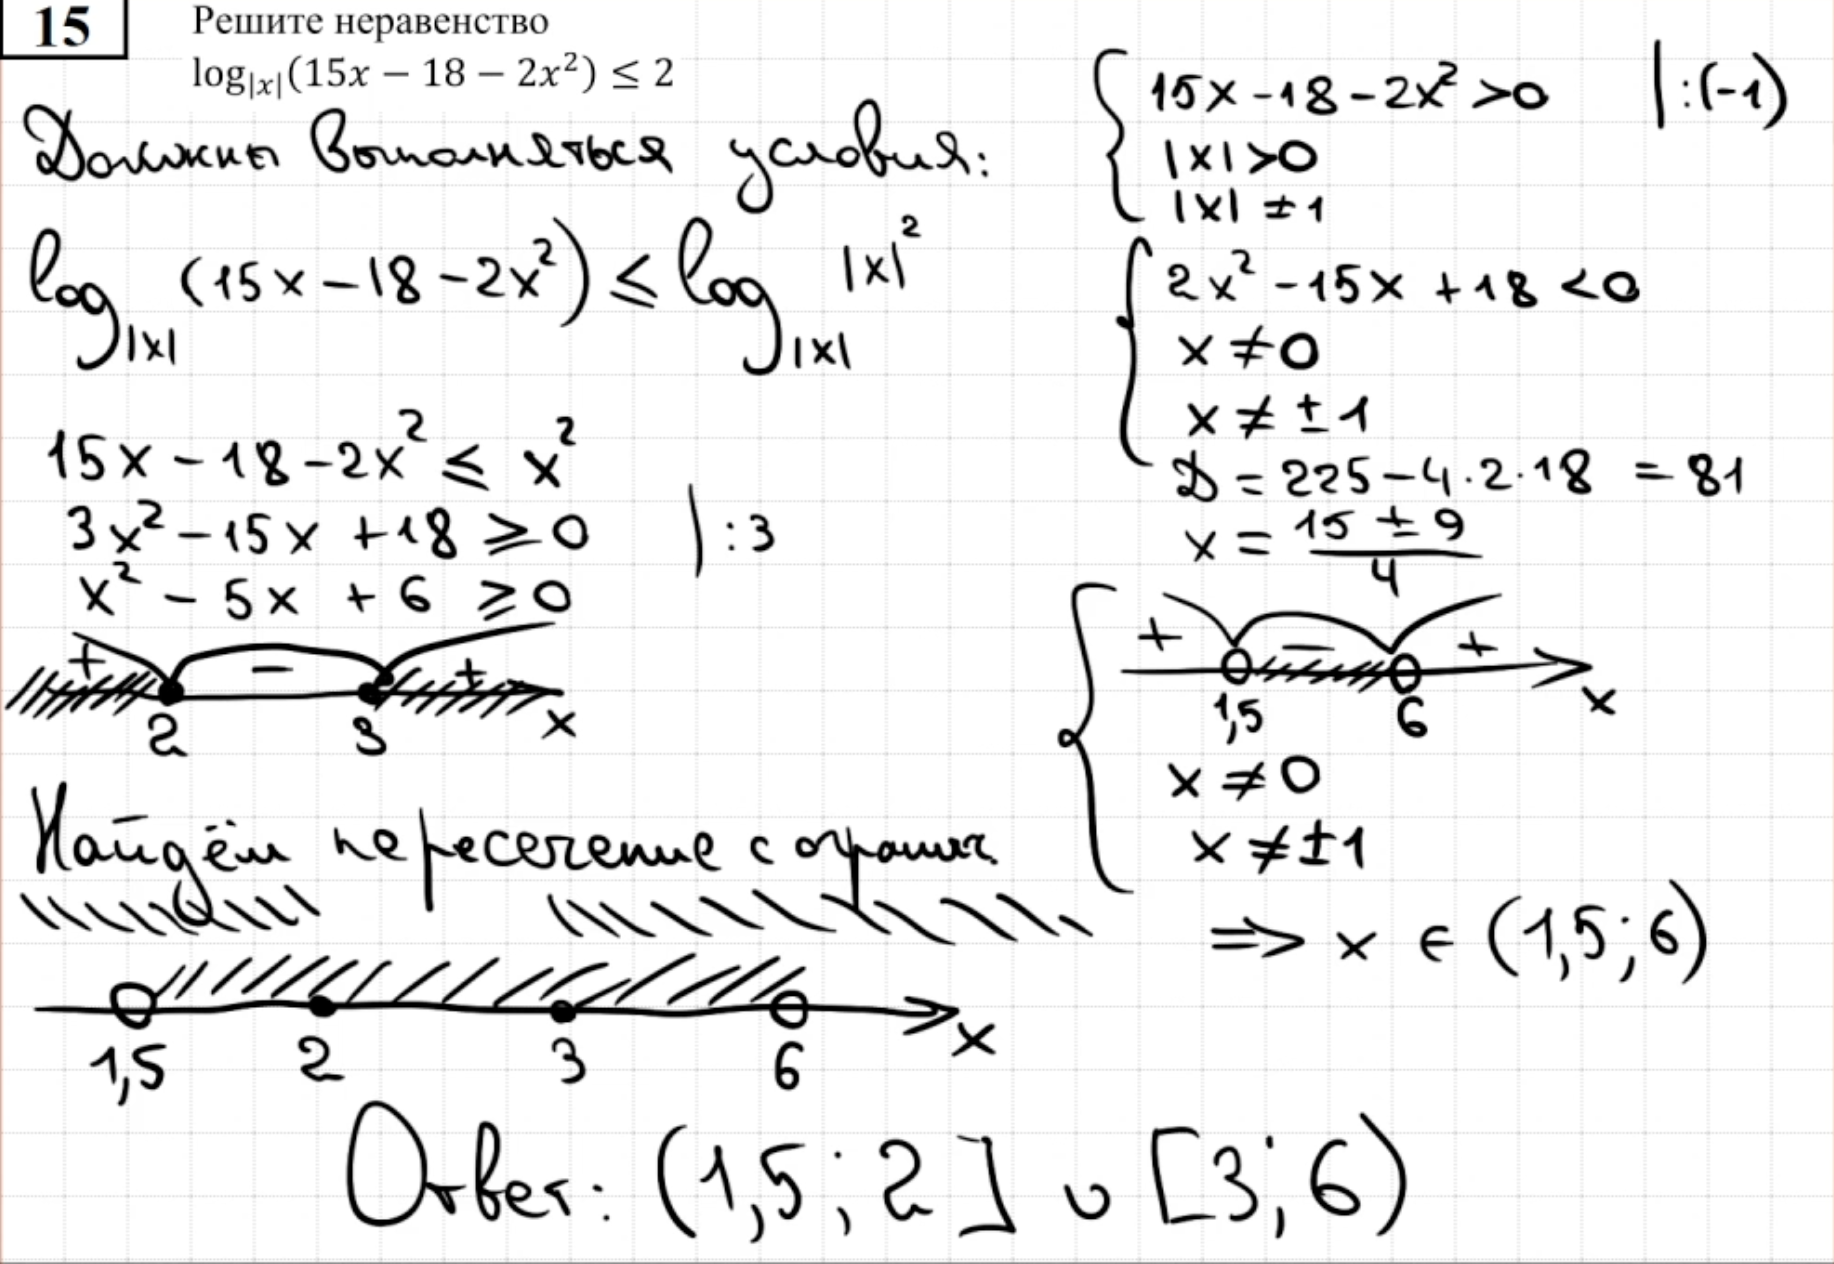 15
Решите неравенство
log|x|(15x − 18 − 2x²) ≤ 2
Должны выполняться условия:
15x - 18 - 2x² > 0 | :(-1)
|x| > 0
|x| ≠ 1
2x² - 15x + 18 < 0
x ≠ 0
x ≠ ± 1
D = 225 - 4·2·18 = 81
x = (15 ± 9)/4
+ - +
1,5 6 x
x ≠ 0
x ≠ ±1
=> x ∈ (1,5; 6)
log|x| (15x - 18 - 2x²) ≤ log|x| |x|²
15x - 18 - 2x² ≤ x²
3x² - 15x + 18 ≥ 0 | :3
x² - 5x + 6 ≥ 0
+ - +
2 3 x
Найдём пересечение с огранич.
1,5 2 3 6 x
Ответ: (1,5; 2] ∪ [3; 6)